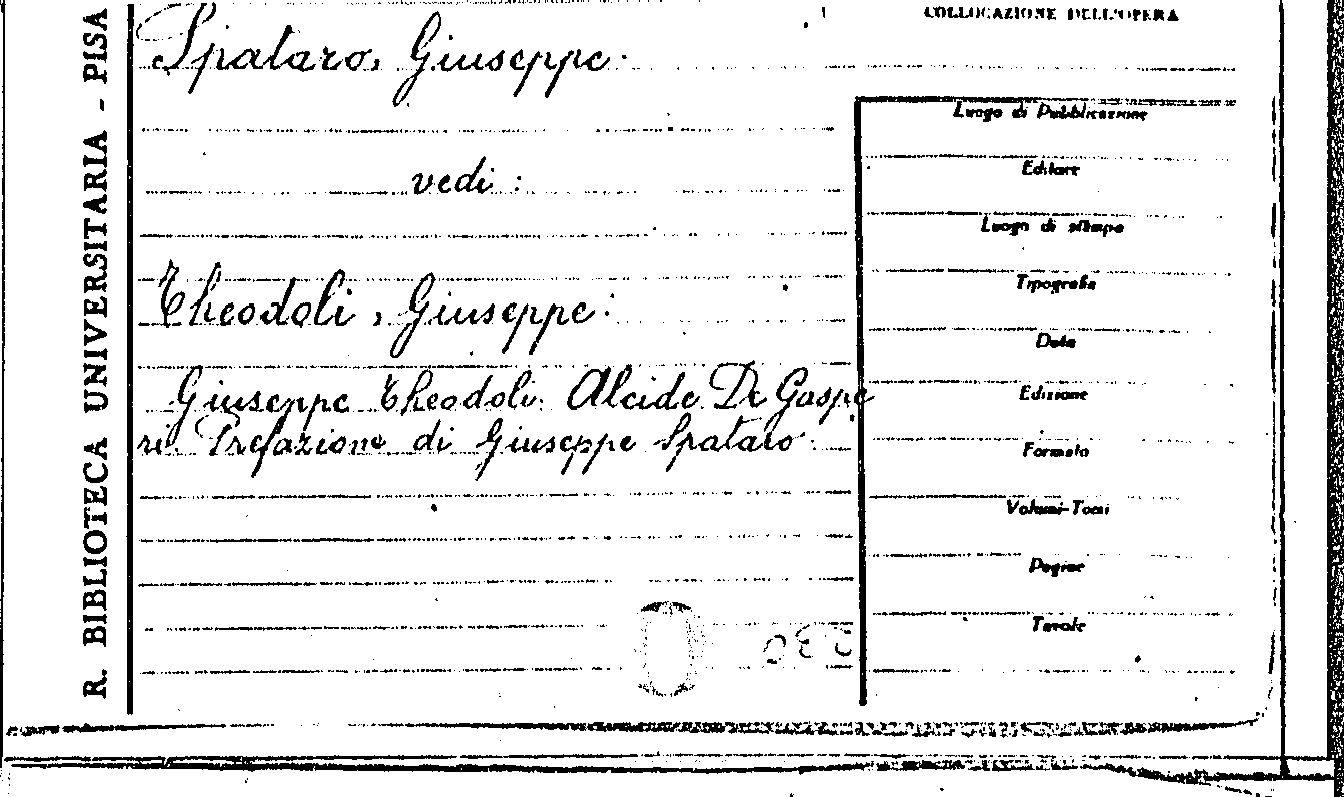 COLLOCAZIONE DELL'OPERA
R. BIBLIOTECA UNIVERSITARIA - PISA
Spataro, Giuseppe.
vedi :
Theodoli, Giuseppe:
Giuseppe Theodoli. Alcide De Gaspe
ri. Prefazione di Giuseppe Spataro.
Luogo di Pubblicazione
Editore
Luogo di stampa
Tipografia
Data
Edizione
Formato
Volumi-Tomi
Pagine
Tavole